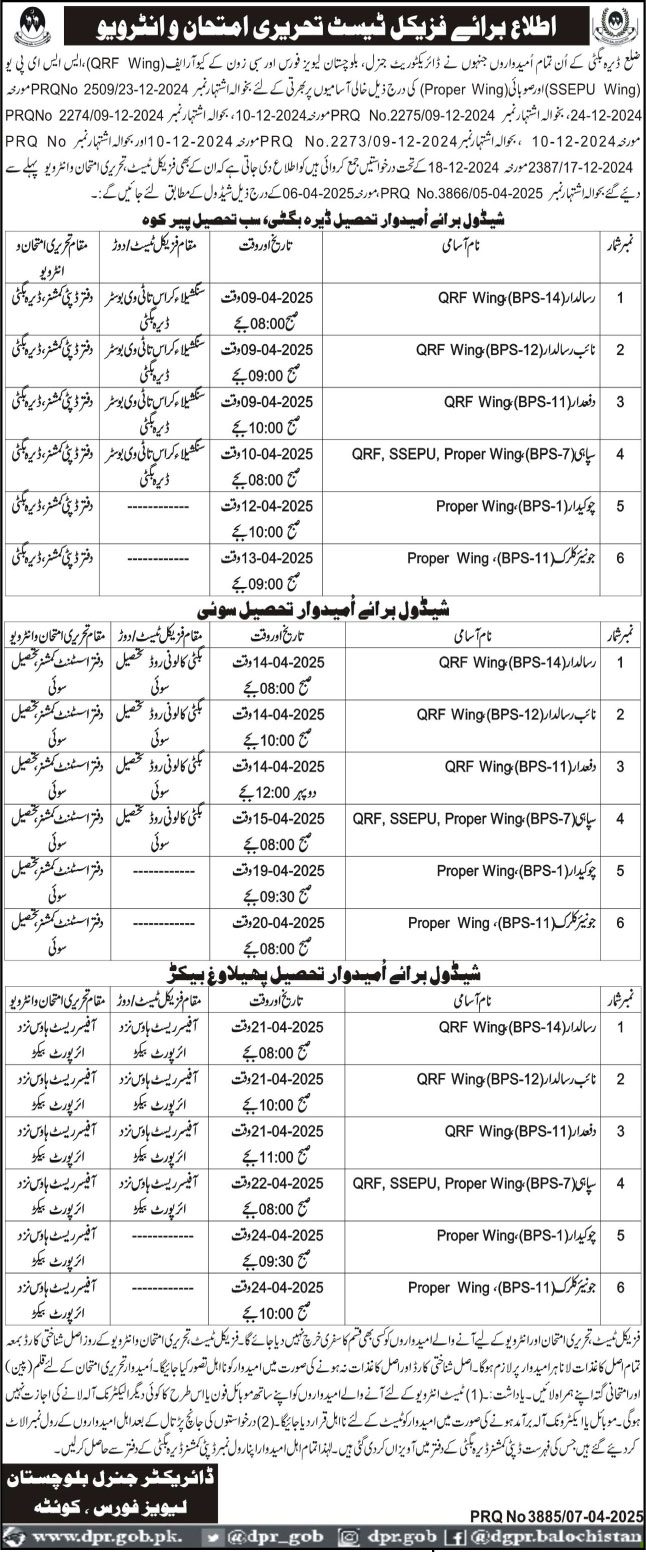 اطلاع برائے فزیکل ٹیسٹ تحریری امتحان و انٹرویو
ضلع ڈیرہ بگٹی کے اُن تمام اُمیدواروں جنہوں نے ڈائریکٹوریٹ جنرل، بلوچستان لیویز فورس اور سبی زون کے کیو آر ایف (QRF Wing)، ایس ایس ای پی یو
(SSEPU Wing) اور صوبائی (Proper Wing) کی درج ذیل خالی آسامیوں پر بھرتی کے لئے بحوالہ اشتہار نمبر PRQNo 2509/23-12-2024 مورخہ
24-12-2024، بحوالہ اشتہار نمبر PRQ No.2275/09-12-2024 مورخہ 10-12-2024، بحوالہ اشتہار نمبر PRQNo 2274/09-12-2024
مورخہ 10-12-2024 ، بحوالہ اشتہار نمبر PRQ No.2273/09-12-2024 مورخہ 10-12-2024 اور بحوالہ اشتہار نمبر PRQ No
2387/17-12-2024 مورخہ 18-12-2024 کے تحت درخواستیں جمع کروائی ہیں کو اطلاع دی جاتی ہے کہ ان کے بھی فزیکل ٹیسٹ، تحریری امتحان و انٹرویو پہلے سے
دیئے گئے بحوالہ اشتہار نمبر PRQ No.3866/05-04-2025، مورخہ 06-04-2025 کے درج ذیل شیڈول کے مطابق لئے جائیں گے:۔
شیڈول برائے اُمیدوار تحصیل ڈیرہ بگٹی، سب تحصیل پیر کوہ
نمبر شمار نام آسامی تاریخ اور وقت مقام فزیکل ٹیسٹ/دوڑ مقام تحریری امتحان و
انٹرویو
1 رسالدار (BPS-14)، QRF Wing 09-04-2025 وقت سنگسیلاء کراس تا ٹی وی بوسٹر دفتر ڈپٹی کمشنر، ڈیرہ بگٹی
صبح 08:00 بجے ڈیرہ بگٹی
2 نائب رسالدار (BPS-12)، QRF Wing 09-04-2025 وقت سنگسیلاء کراس تا ٹی وی بوسٹر دفتر ڈپٹی کمشنر، ڈیرہ بگٹی
صبح 09:00 بجے ڈیرہ بگٹی
3 دفعدار (BPS-11)، QRF Wing 09-04-2025 وقت سنگسیلاء کراس تا ٹی وی بوسٹر دفتر ڈپٹی کمشنر، ڈیرہ بگٹی
صبح 10:00 بجے ڈیرہ بگٹی
4 سپاہی (BPS-7)، QRF, SSEPU, Proper Wing 10-04-2025 وقت سنگسیلاء کراس تا ٹی وی بوسٹر دفتر ڈپٹی کمشنر، ڈیرہ بگٹی
صبح 08:00 بجے ڈیرہ بگٹی
5 چوکیدار (BPS-1)، Proper Wing 12-04-2025 وقت ------------ دفتر ڈپٹی کمشنر، ڈیرہ بگٹی
صبح 10:00 بجے
6 جونیئر کلرک (BPS-11)، Proper Wing 13-04-2025 وقت ------------ دفتر ڈپٹی کمشنر، ڈیرہ بگٹی
صبح 09:00 بجے
شیڈول برائے اُمیدوار تحصیل سوئی
نمبر شمار نام آسامی تاریخ اور وقت مقام فزیکل ٹیسٹ/دوڑ مقام تحریری امتحان و انٹرویو
1 رسالدار (BPS-14)، QRF Wing 14-04-2025 وقت بگٹی کالونی روڈ تحصیل دفتر اسسٹنٹ کمشنر، تحصیل
صبح 08:00 بجے سوئی سوئی
2 نائب رسالدار (BPS-12)، QRF Wing 14-04-2025 وقت بگٹی کالونی روڈ تحصیل دفتر اسسٹنٹ کمشنر، تحصیل
صبح 10:00 بجے سوئی سوئی
3 دفعدار (BPS-11)، QRF Wing 14-04-2025 وقت بگٹی کالونی روڈ تحصیل دفتر اسسٹنٹ کمشنر، تحصیل
دوپہر 12:00 بجے سوئی سوئی
4 سپاہی (BPS-7)، QRF, SSEPU, Proper Wing 15-04-2025 وقت بگٹی کالونی روڈ تحصیل دفتر اسسٹنٹ کمشنر، تحصیل
صبح 08:00 بجے سوئی سوئی
5 چوکیدار (BPS-1)، Proper Wing 19-04-2025 وقت ------------ دفتر اسسٹنٹ کمشنر، تحصیل
صبح 09:30 بجے سوئی
6 جونیئر کلرک (BPS-11)، Proper Wing 20-04-2025 وقت ------------ دفتر اسسٹنٹ کمشنر، تحصیل
صبح 08:00 بجے سوئی
شیڈول برائے اُمیدوار تحصیل پھیلاوغ بیکڑ
نمبر شمار نام آسامی تاریخ اور وقت مقام فزیکل ٹیسٹ/دوڑ مقام تحریری امتحان و انٹرویو
1 رسالدار (BPS-14)، QRF Wing 21-04-2025 وقت آفیسر ریسٹ ہاؤس نزد آفیسر ریسٹ ہاؤس نزد
صبح 08:00 بجے ائر پورٹ بیکڑ ائر پورٹ بیکڑ
2 نائب رسالدار (BPS-12)، QRF Wing 21-04-2025 وقت آفیسر ریسٹ ہاؤس نزد آفیسر ریسٹ ہاؤس نزد
صبح 10:00 بجے ائر پورٹ بیکڑ ائر پورٹ بیکڑ
3 دفعدار (BPS-11)، QRF Wing 21-04-2025 وقت آفیسر ریسٹ ہاؤس نزد آفیسر ریسٹ ہاؤس نزد
صبح 11:00 بجے ائر پورٹ بیکڑ ائر پورٹ بیکڑ
4 سپاہی (BPS-7)، QRF, SSEPU, Proper Wing 22-04-2025 وقت آفیسر ریسٹ ہاؤس نزد آفیسر ریسٹ ہاؤس نزد
صبح 08:00 بجے ائر پورٹ بیکڑ ائر پورٹ بیکڑ
5 چوکیدار (BPS-1)، Proper Wing 24-04-2025 وقت ------------ آفیسر ریسٹ ہاؤس نزد
صبح 09:30 بجے ائر پورٹ بیکڑ
6 جونیئر کلرک (BPS-11)، Proper Wing 24-04-2025 وقت ------------ آفیسر ریسٹ ہاؤس نزد
صبح 10:00 بجے ائر پورٹ بیکڑ
فزیکل ٹیسٹ، تحریری امتحان اور انٹرویو کے لیے آنے والے امیدواروں کو کسی بھی قسم کا سفری خرچ نہیں دیا جائے گا۔ فزیکل ٹیسٹ، تحریری امتحان و انٹرویو کے روز اصل شناختی کارڈ بمعہ
تمام اصل کاغذات لانا ہر امیدوار پر لازم ہوگا۔ اصل شناختی کارڈ اور اصل کاغذات نہ ہونے کی صورت میں امیدوار کو نا اہل تصور کیا جائیگا۔ اُمیدوار تحریری امتحان کے لئے قلم (پین)
اور امتحانی گتہ اپنے ہمراہ لائیں۔ یادداشت:۔ (1) ٹیسٹ انٹرویو کے لئے آنے والے امیدواروں کو اپنے ساتھ موبائل فون یا اس طرح کا کوئی دیگر الیکٹرانک آلہ لانے کی اجازت نہیں
ہوگی۔ موبائل یا الیکٹرونک آلہ برآمد ہونے کی صورت میں امیدوار کو ٹیسٹ کے لئے نا اہل قرار دیا جائیگا۔ (2) درخواستوں کی جانچ پڑتال کے بعد اہل امیدواروں کے رول نمبر الاٹ
کر دیئے گئے ہیں جس کی فہرست ڈپٹی کمشنر ڈیرہ بگٹی کے دفتر میں آویزاں کر دی گئی ہیں۔ لہٰذا تمام اہل امیدوار اپنا رول نمبر ڈپٹی کمشنر ڈیرہ بگٹی کے دفتر سے حاصل کر لیں۔
ڈائریکٹر جنرل بلوچستان
لیویز فورس ، کوئٹہ
PRQ No 3885/07-04-2025
www.dpr.gob.pk. @dpr_gob dpr.gob @dgpr.balochistan